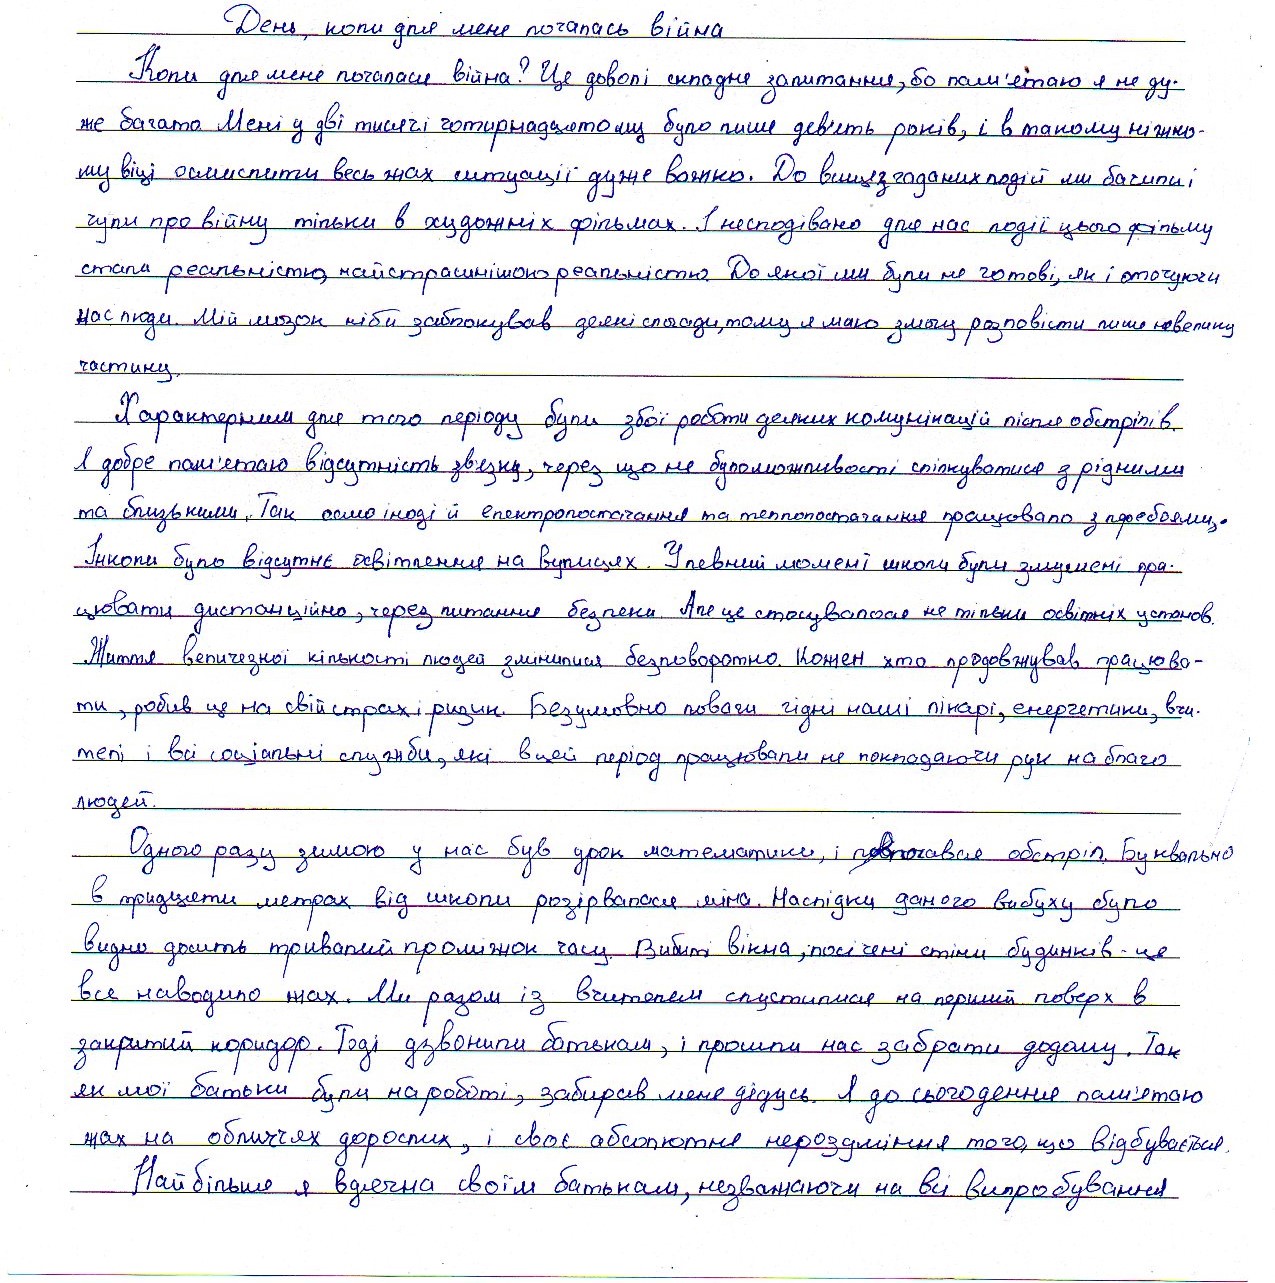 День, коли для мене почалась війна
Коли для мене почалася війна? Це доволі складне запитання, бо пам'ятаю я не ду-
же багато. Мені у дві тисячі чотирнадцятому було лише дев'ять років, і в такому ніжно-
му віці осмислити весь жах ситуації дуже важко. До вищезгаданих подій ми бачили і
чули про війну тільки в художніх фільмах. І несподівано для нас події цього фільму
стали реальністю, найстрашнішою реальністю. До якої ми були не готові, як і оточуючі
нас люди. Мій мозок ніби заблокував деякі спогади, тому я маю змогу розповісти лише невелику
частину.
Характерним для того періоду були збої роботи деяких комунікацій після обстрілів.
Я добре пам'ятаю відсутність зв'язку, через що не було можливості спілкуватися з рідними
та близькими. Так само іноді й електропостачання та теплопостачання працювало з перебоями.
Інколи було відсутнє освітлення на вулицях. У певний момент школи були змушені пра-
цювати дистанційно, через питання безпеки. Але це стосувалося не тільки освітніх установ.
Життя величезної кількості людей змінилися безповоротно. Кожен хто продовжував працюва-
ти, робив це на свій страх і ризик. Безумовно поваги гідні наші лікарі, енергетики, вчи-
телі і всі соціальні служби, які в цей період працювали не покладаючи рук на благо
людей.
Одного разу зимою у нас був урок математики, і почався обстріл. Буквально
в тридцяти метрах від школи розірвалася міна. Наслідки даного вибуху було
видно досить тривалий проміжок часу. Вибиті вікна, посічені стіни будинків - це
все наводило жах. Ми разом із вчителем спустилися на перший поверх в
закритий коридор. Тоді дзвонили батькам, і прошли нас забрати додому. Так
як мої батьки були на роботі, забирав мене дідусь. Я до сьогодення пам'ятаю
жах на обличчях дорослих, і своє абсолютне нерозуміння того, що відбувається.
Найбільше я вдячна своїм батькам, незважаючи на всі випробування